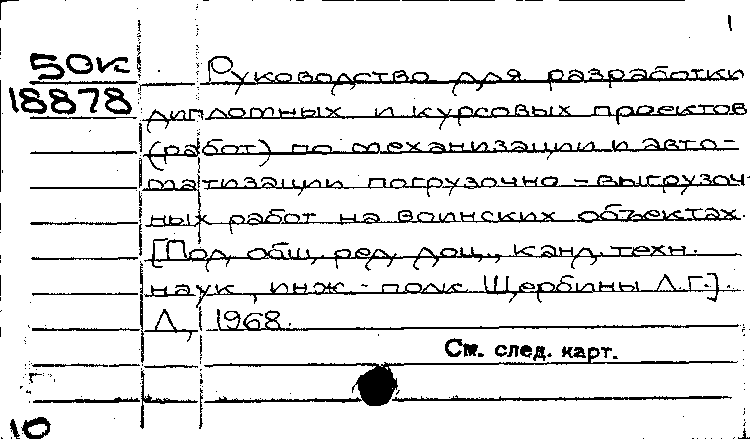 1
50к Руководство для разработки
18878 дипломных и курсовых проектов
(работ) по механизации и авто-
матизации погрузочно-выгрузоч-
ных работ на воинских объектах.
[Под общ. ред. доц., канд. техн.
наук, инж.-полк. Щербины Л.Г.].
Л., 1968.
См. след. карт.
10